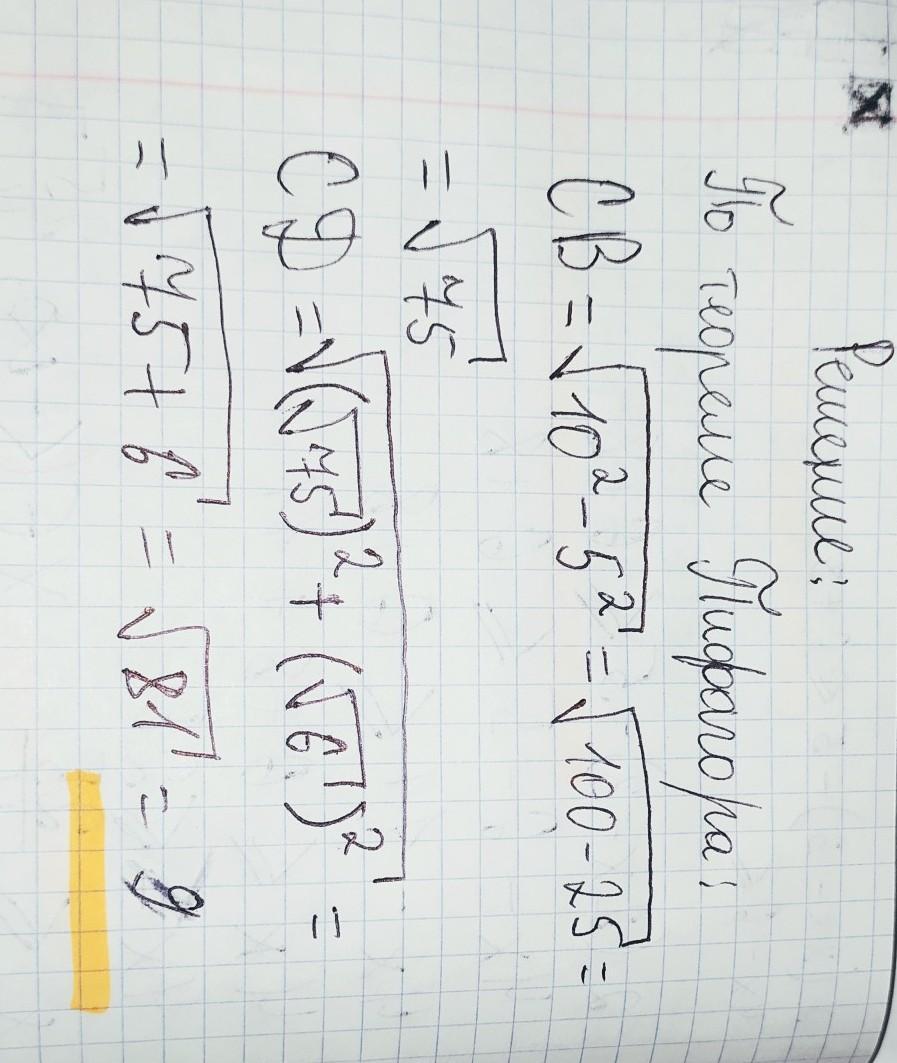 Решение:
По теореме Пифагора:
CB = √(10² - 5²) = √(100 - 25) =
= √75
CD = √((√75)² + (√6)²) =
= √(75 + 6) = √81 = 9